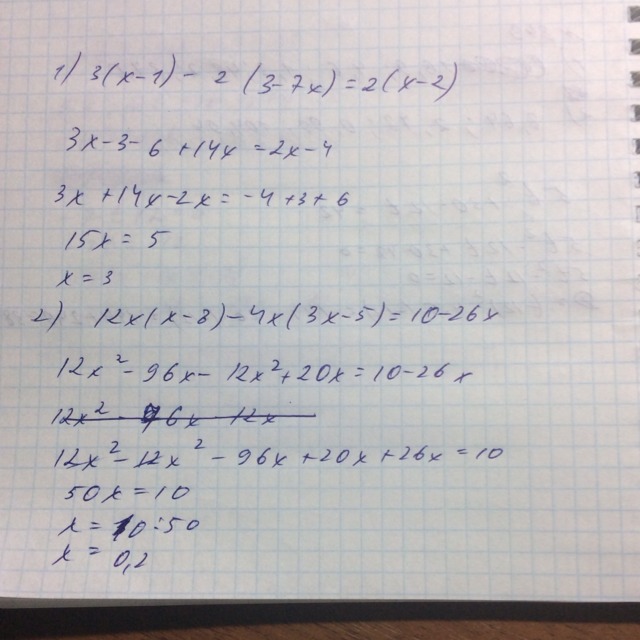 1) 3(x-1) - 2 (3-7x) = 2(x-2)
3x-3-6+14x=2x-4
3x+14x-2x=-4+3+6
15x=5
x=3
2) 12x(x-8)-4x(3x-5)=10-26x
12x²-96x-12x²+20x=10-26x
12x² - 96x 12x
12x²-12x²-96x+20x+26x=10
50x=10
x=10:50
x=0,2